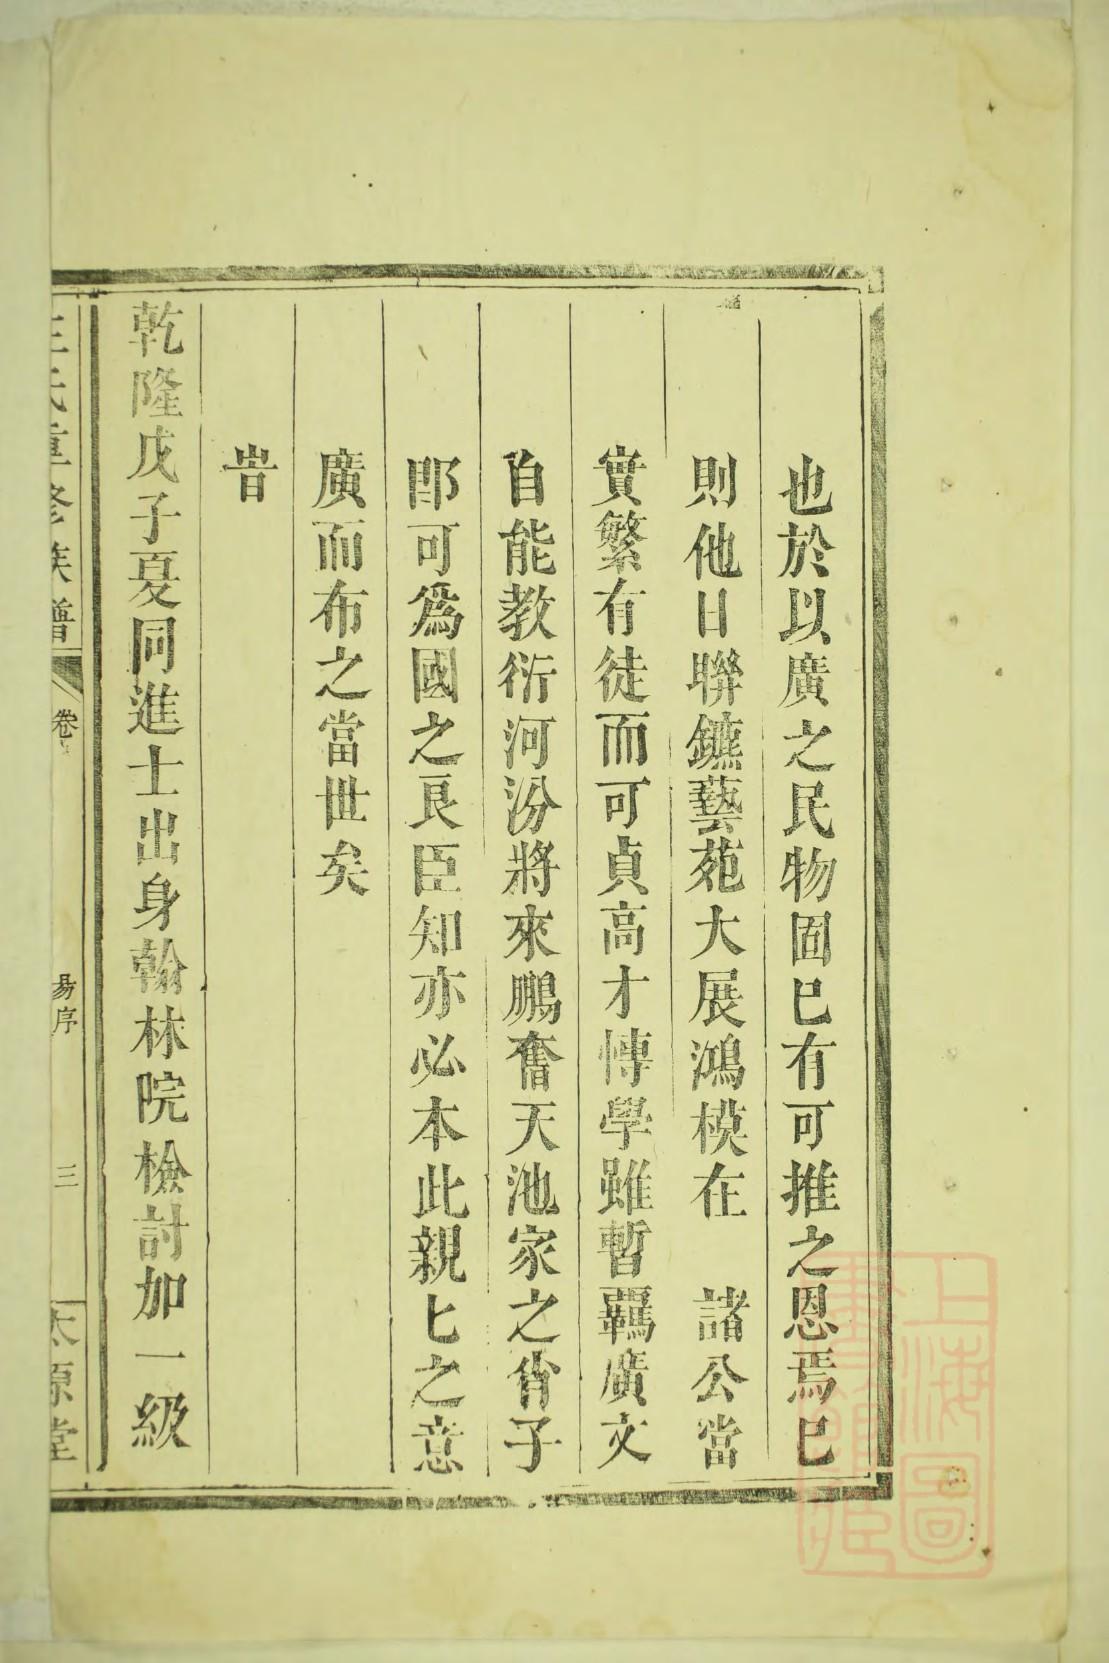 也於以廣之民物固已有可推之恩焉已
則他日聯鑣藝苑大展鴻模在　諸公當
實繁有徒而可貞高才博學雖暫羈廣文
自能教衍河汾將來鵬奮天池家之肖子
卽可爲國之良臣知亦必本此親匕之意
廣而布之當世矣
旹
乾隆戊子夏同進士出身翰林院檢討加一級
王氏重修族譜
卷
易序
三
太原堂
上海圖書館藏